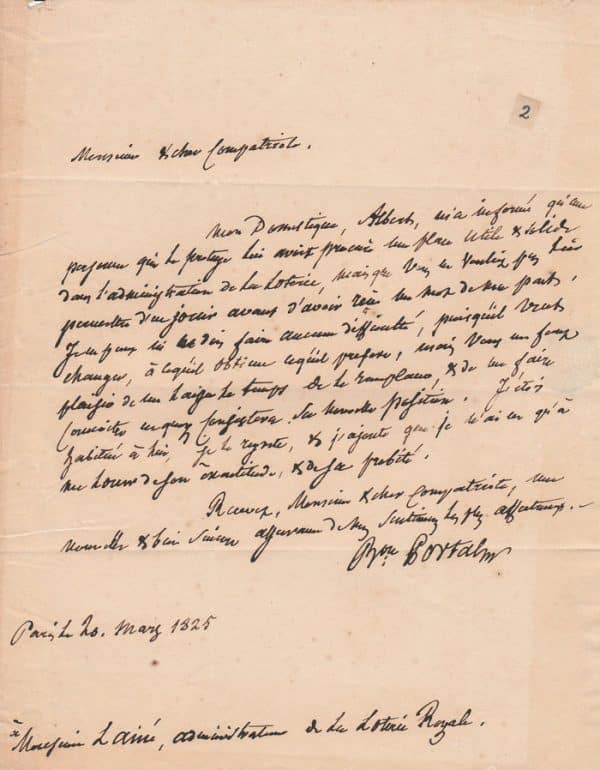 2
Monsieur & cher Compatriote.
Mon Domestique, Albert, m'a informé qu'une
personne qui le protege lui avoit procuré une place utile & solide
dans l'administration de la Loterie, mais que vous ne vouliez pas lui
permettre d'en jouir avant d'avoir reçu un mot de ma part.
Je ne puis ni ne dois faire aucune difficulté, puisqu'il veut
changer, à ce qu'il obtienne ce qu'il prefere, mais vous me ferez
plaisir de me laisser le temps de le remplacer & de me faire
connoitre en quoy consistera sa nouvelle position. J'étois
habitué à lui, je le regrette, & j'ajoute que je n'ai eu qu'à
me louer de son exactitude, & de sa probité.
Recevez, Monsieur & cher Compatriote, une
nouvelle & bien sincere assurance de mes sentimens les plus affectueux.
Bon. Portal
Paris le 20. Mars 1825
à Monsieur Lainé, administrateur de la Loterie Royale.